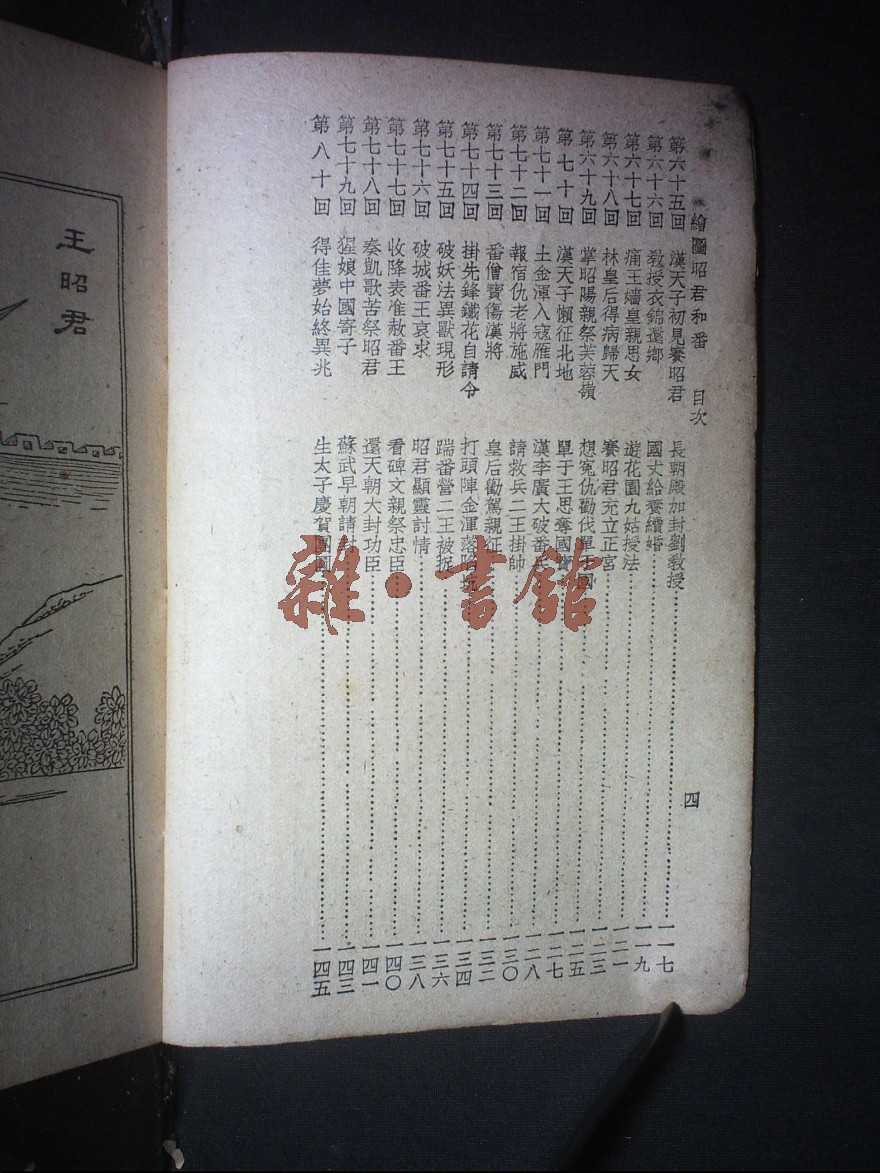 繪圖昭君和番 目次 四
第六十五回 漢天子初見賽昭君 長朝殿加封劉教授 一一七
第六十六回 教授衣錦還鄉 國丈給養續婚 一一九
第六十七回 痛王嬙皇親思女 遊花園九姑授法 一二一
第六十八回 林皇后得病歸天 賽昭君充立正宮 一二三
第六十九回 掌昭陽親祭芙蓉嶺 想冤仇勸伐單于國 一二五
第七十回 漢天子懶征北地 單于王思奪國寶 一二七
第七十一回 土金渾入寇雁門 漢李廣大破番兵 一二八
第七十二回 報宿仇老將施威 請救兵二王掛帥 一三〇
第七十三回 番僧寶傷漢將 皇后勸駕親征 一三二
第七十四回 掛先鋒鐵花自請令 打頭陣金渾落陷坑 一三四
第七十五回 破妖法異獸現形 踹番營二王被捉 一三六
第七十六回 破城番王哀求 昭君顯靈討情 一三八
第七十七回 收降表准赦番王 看碑文親祭忠臣 一四〇
第七十八回 奏凱歌苦祭昭君 還天朝大封功臣 一四一
第七十九回 猩娘中國寄子 蘇武早朝請封 一四三
第八十回 得佳夢始終異兆 生太子慶賀團圓 一四五
王昭君
雜·書館